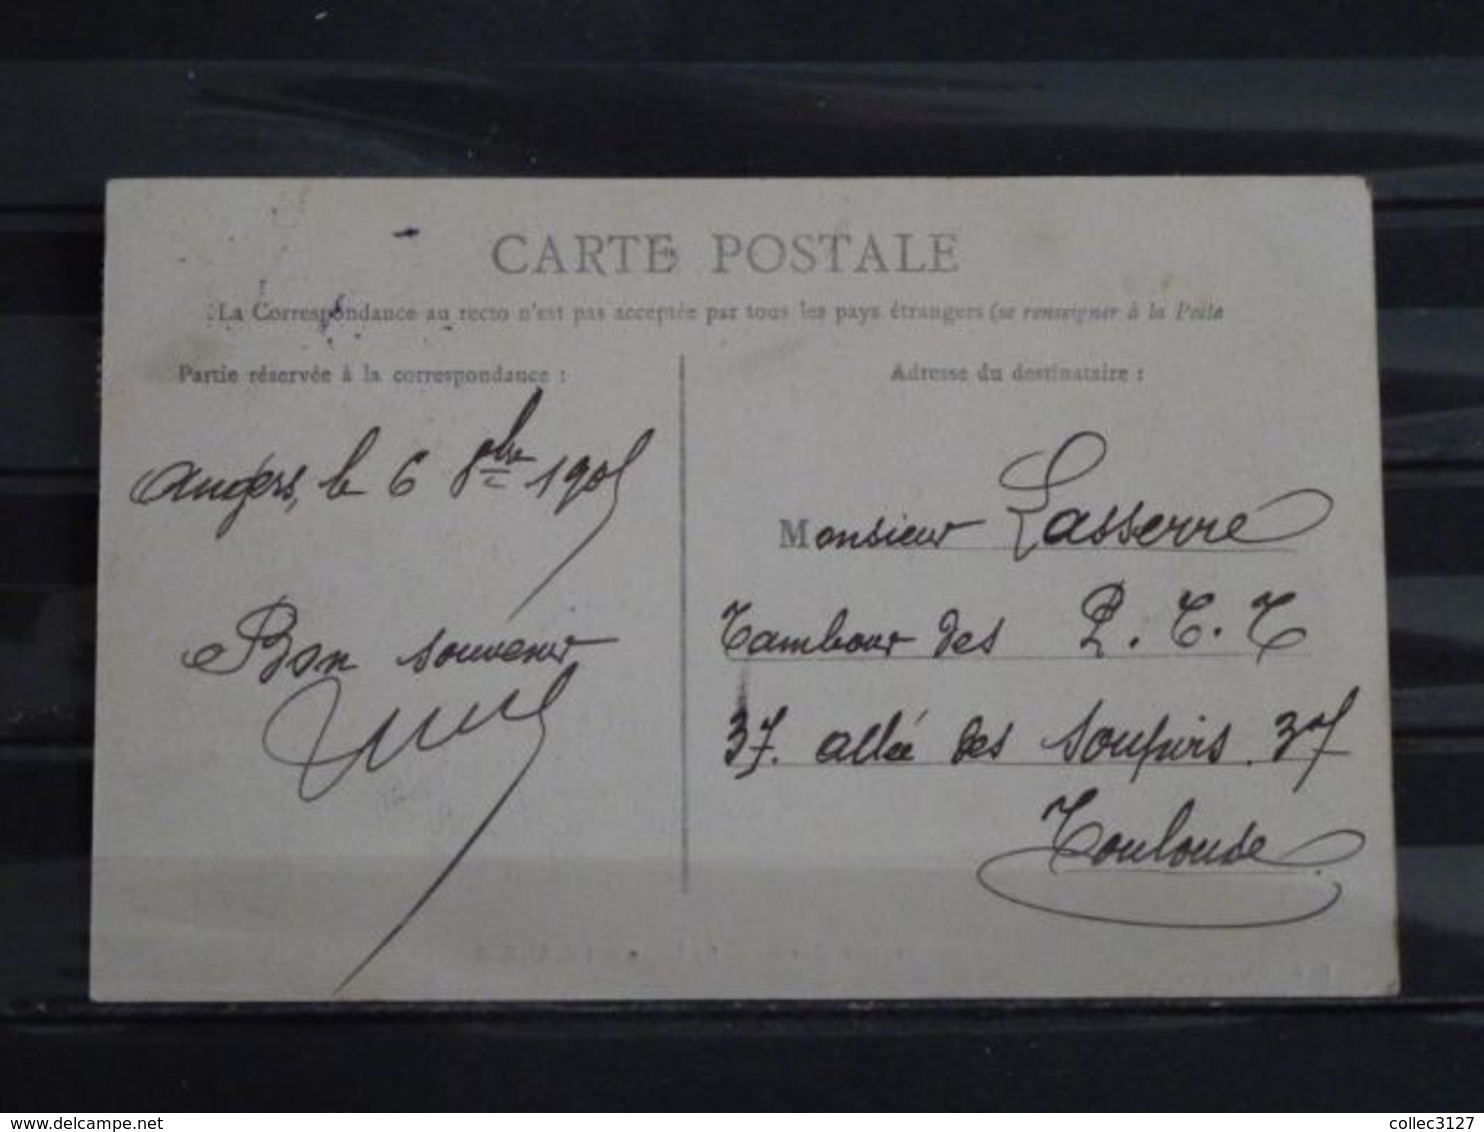 CARTE POSTALE
La Correspondance au recto n'est pas acceptée par tous les pays étrangers (se renseigner à la Poste
Partie réservée à la correspondance :
Adresse du destinataire :
Angers, le 6 8bre 1905
Bon souvenir
Monsieur Lasserre
Tambour des P.T.T
37. allée des Soupirs. 37
Toulouse
delcampe.net
collec3127